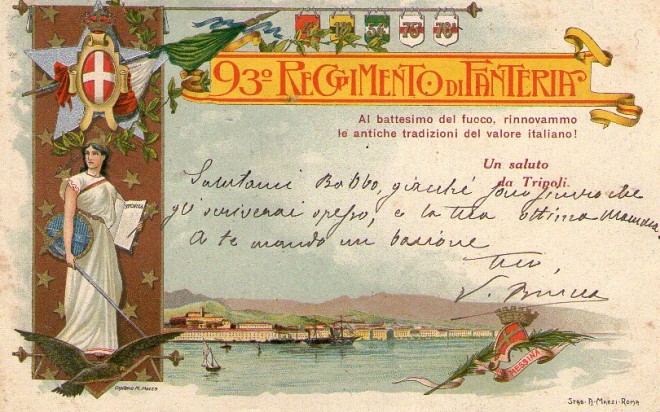 12 54 75 78
93º REGGIMENTO DI FANTERIA
Al battesimo del fuoco, rinnovammo
le antiche tradizioni del valore italiano!
Un saluto
da Tripoli.
Salutami Babbo, giacché sono sicuro che
gli scriverai spesso, e la tua ottima Mamma.
A te mando un bacione
tuo
V.
MESSINA
STAB. A. MARZI - ROMA